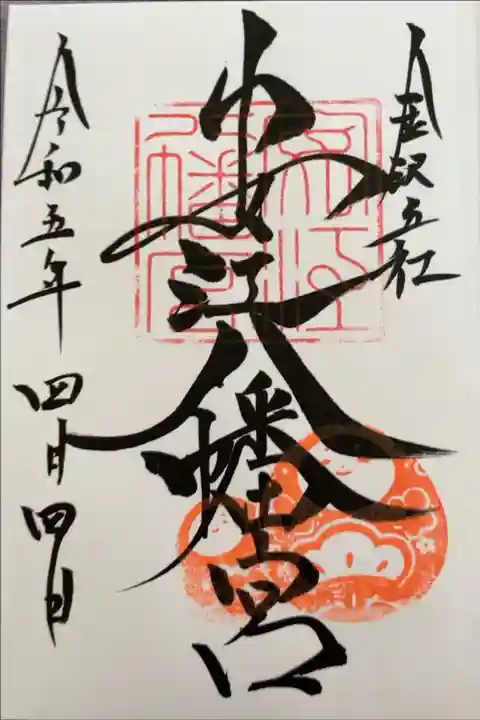 金沢五社
安江八幡宮
令和五年四月四日